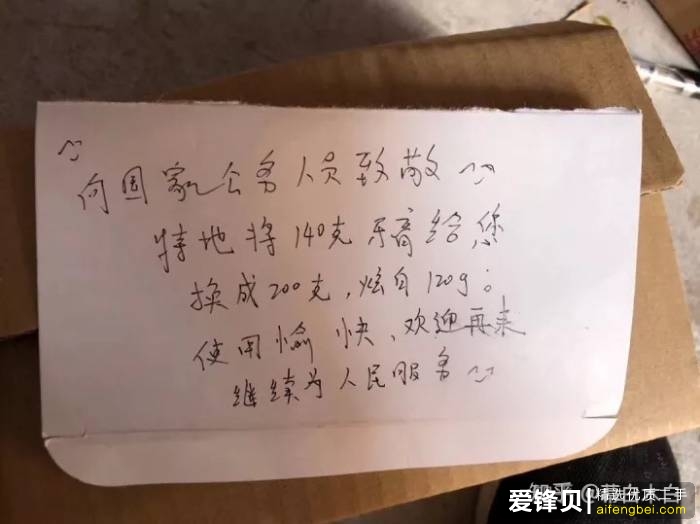 向国家公务人员致敬
特地将140克牙膏给您
换成200克，炫白120g；
使用愉快、欢迎再来
继续为人民服务
知乎
爱锋贝
精选优质二手
aifengbei.com